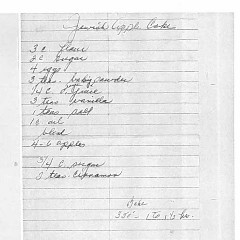 Jewish Apple Cake
3 c flour
2 c sugar
4 eggs
3 tea. baking powder
1/4 c. O. Juice
3 teas vanilla
1 teas salt
1 c oil
blend
4-6 apples
3/4 c. sugar
3 teas cinnamon
Bake
350° - 1 to 1½ hr.